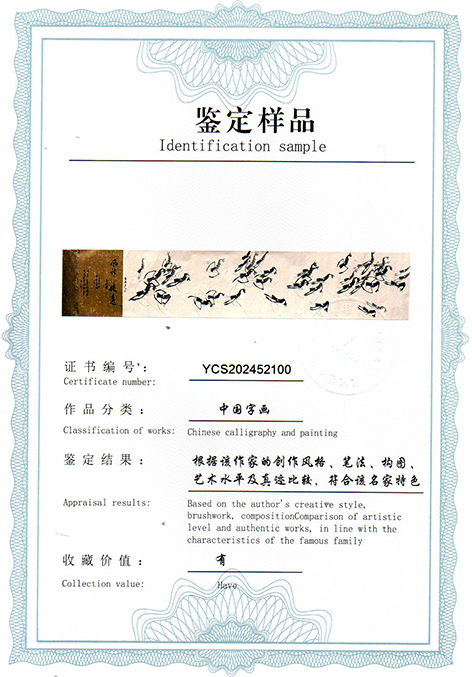 鉴定样品
Identification sample
证书编号：
YCS202452100
Certificate number:
作品分类：
中国字画
Classification of works:
Chinese calligraphy and painting
鉴定结果：
根据该作家的创作风格、笔法、构图、
艺术水平及真迹比较，符合该名家特色
Appraisal results:
Based on the author's creative style,
brushwork, compositionComparison of artistic
level and authentic works, in line with the
characteristics of the famous family
收藏价值：
有
Collection value:
Have